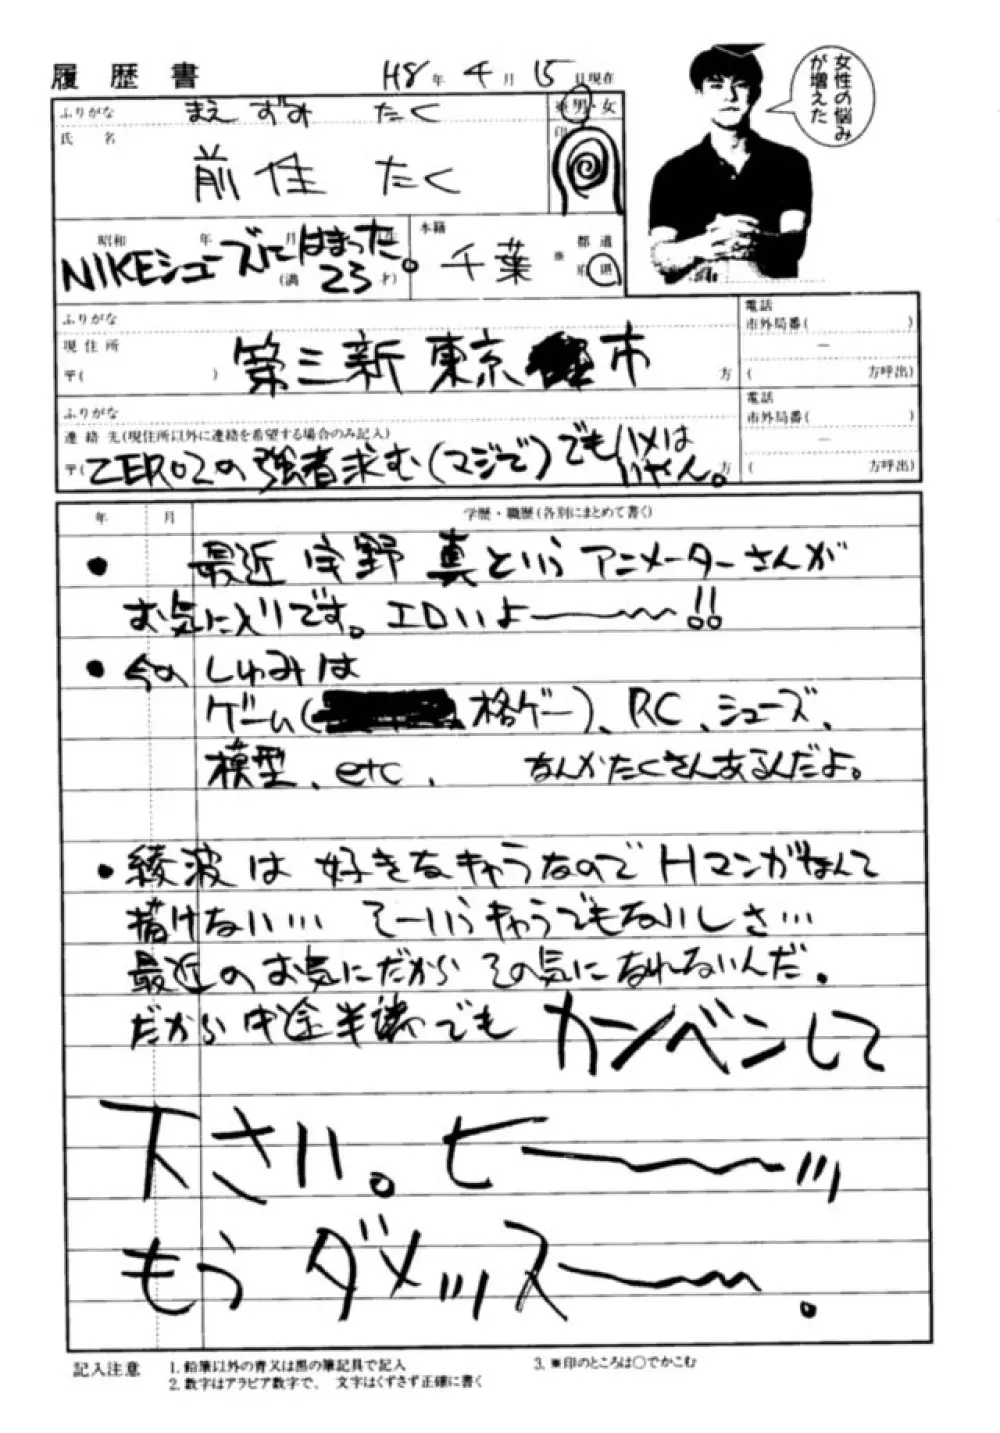 履歴書
H8年 4月 15日現在
ふりがな まえずみ たく
※男・女
氏名
前住 たく
印
女性の悩み
が増えた
昭和 年 月 日生
NIKEシューズにはまった。
(満 23才)
本籍
千葉
※
都道
府県
ふりがな
現住所
〒( )
第三新東京市
方
電話
市外局番( )
―
( 方呼出)
ふりがな
連絡先(現住所以外に連絡を希望する場合のみ記入)
〒( ZERO2の強者求む(マジで)でもハメは
いやん。
方
電話
市外局番( )
―
( 方呼出)
年 月 学歴・職歴(各別にまとめて書く)
● 最近宇野真というアニメーターさんが
お気に入りです。エロいよ――〜〜!!
● 今のしゅみは
ゲーム( 格ゲー)、RC、シューズ、
模型、etc、 なんかたくさんあるんだよ。
● 綾波は好きなキャラなのでHマンガなんて
描けない… そーいうキャラでもないしさ…
最近のお気にだからその気になれないんだ。
だから中途半端でもカンベンして
下さい。ヒー――〜〜ッ
もうダメッスー〜〜。
記入注意
1. 鉛筆以外の青又は黒の筆記具で記入
2. 数字はアラビア数字で、文字はくずさず正確に書く
3. ※印のところは○でかこむ